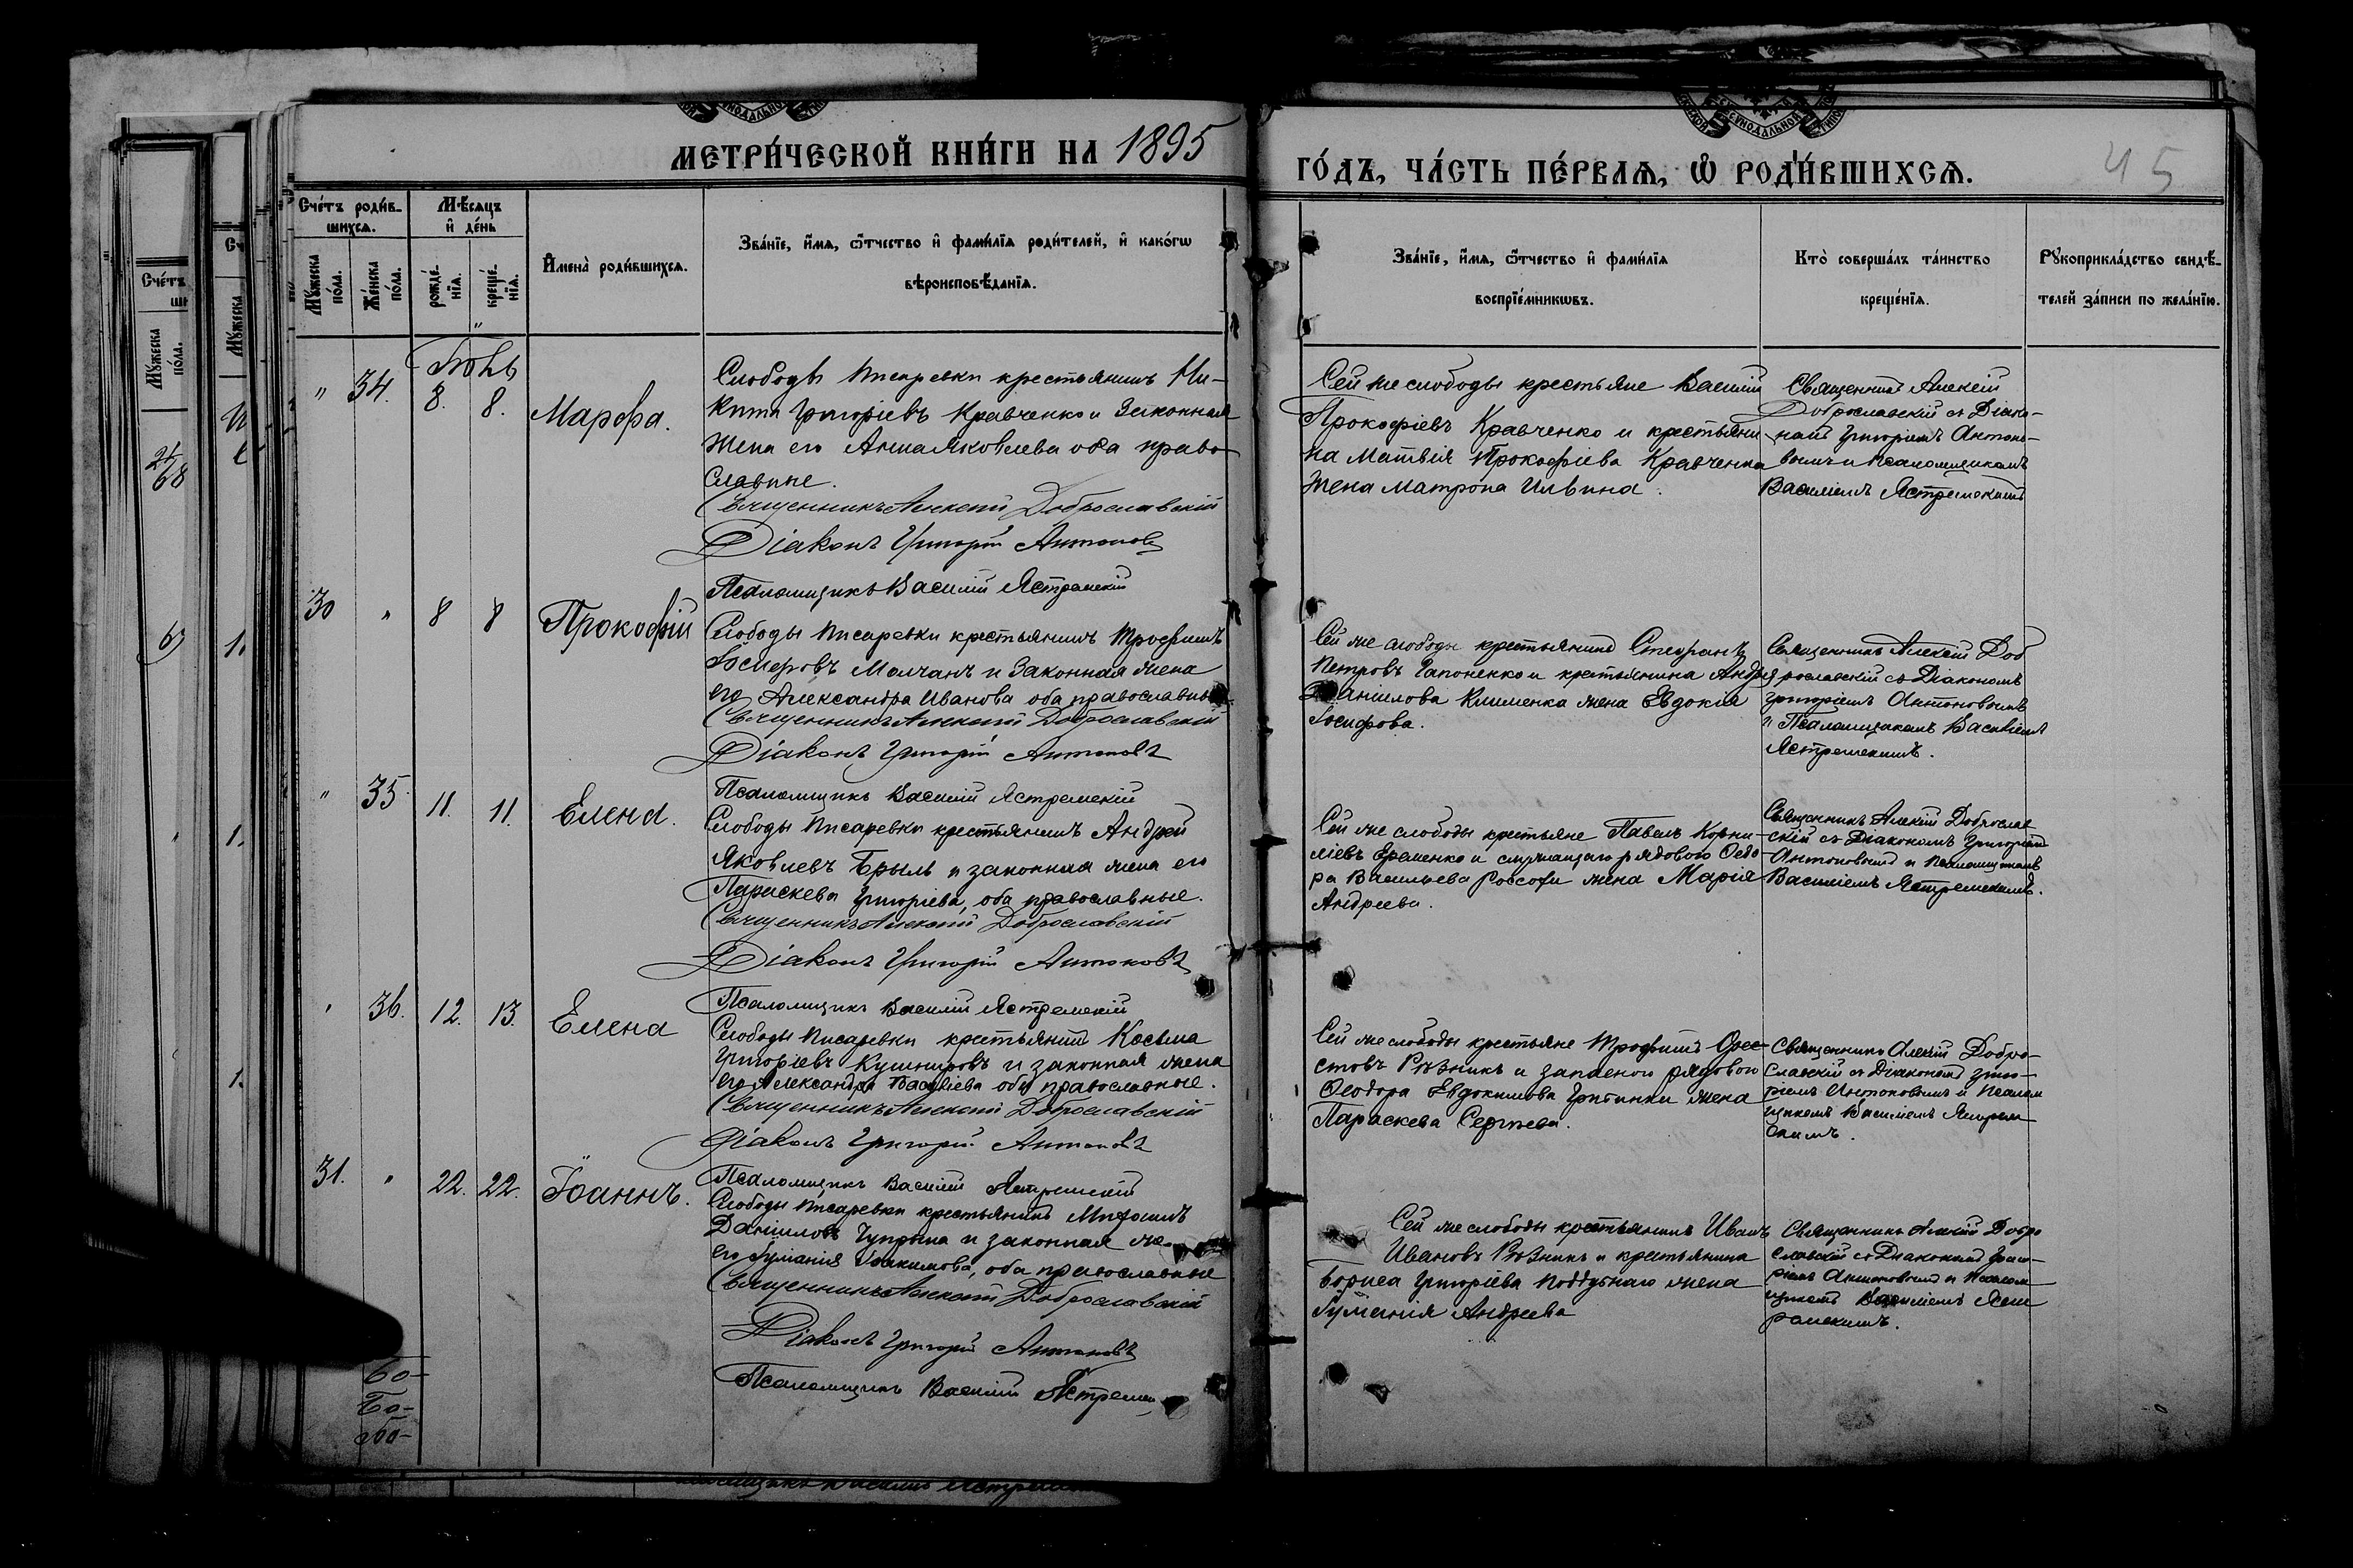 МЕТРИ́ЧЕСКОЙ КНИ́ГИ НА 1895
ГО́ДЪ, ЧА́СТЬ ПЕ́РВАѦ, Ѡ РОДИ́ВШИХСѦ.
45
Сче́тъ роди́в-
шихсѧ.
Мѣ́сѧцъ
и де́нь
Мꙋ́жеска
по́ла.
Же́нска
по́ла.
рожде́-
нїѧ.
креще́-
нїѧ.
И҆мена̀ роди́вшихсѧ.
Зва́нїе, и҆́мѧ, ѻ҆́тчество и҆ фами́лїѧ роди́телей, и҆ како́гѡ
вѣроисповѣ́данїѧ.
Зва́нїе, и҆́мѧ, ѻ҆́тчество и҆ фами́лїѧ
воспрїе́мникѡвъ.
Кто̀ соверша́лъ та́инство
креще́нїѧ.
Рꙋкоприкла́дство свидѣ́-
телей за́писи по жела́нїю.
" 34. 8. 8. Марѳа.
Слободы Писаревки крестьянинъ Ни-
кита Григоріевъ Кравченко и законная
жена его Анна Яковлева оба право-
славные.
Священникъ Алексій Доброславскій
Діаконъ Григорій Антоновъ
Псаломщикъ Василій Ястремскій
Сей же слободы крестьяне Василій
Прокофіевъ Кравченко и крестьяни-
на Матвія Прокофіева Кравченка
жена Матрона Ильина.
Священникъ Алексій
Доброславскій съ Діако-
номъ Григоріемъ Антоно-
вымъ и Псаломщикомъ
Василіемъ Ястремскимъ
30 " 8 8 Прокофій
Слободы Писаревки крестьянинъ Трофимъ
Іосифовъ Молчанъ и законная жена
его Александра Иванова оба православные
Священникъ Алексій Доброславскій
Діаконъ Григорій Антоновъ
Псаломщикъ Василій Ястремскій
Сей же слободы крестьянинъ Стефанъ
Петровъ Гапоненко и крестьянина Андрея
Даніилова Клименка жена Евдокія
Іосифова.
Священникъ Алексій Доб
рославскій съ Діакономъ
Григоріемъ Антоновымъ
и Псаломщикомъ Василіемъ
Ястремскимъ.
" 35 11. 11. Елена.
Слободы Писаревки крестьянинъ Андрей
Яковлевъ Брыль и законная жена его
Параскева Григоріева, оба православные.
Священникъ Алексій Доброславскій
Діаконъ Григорій Антоновъ
Псаломщикъ Василій Ястремскій
Сей же слободы крестьяне Павелъ Корни-
ліевъ Еременко и служащаго рядового Ѳедо-
ра Васильева жена Марія
Андреева.
Священникъ Алексій Доброслав
скій съ Діакономъ Григоріемъ
Антоновымъ и Псаломщикомъ
Василіемъ Ястремскимъ.
" 36. 12. 13. Елена
Слободы Писаревки крестьянинъ Косьма
Григоріевъ Кушнировъ и законная жена
его Александра Василіева оба православные.
Священникъ Алексій Доброславскій
Діаконъ Григорій Антоновъ
Псаломщикъ Василій Ястремскій
Сей же слободы крестьяне Трофимъ Орес-
стовъ Рѣзникъ и запасного рядового
Ѳеодора Евдокимова жена
Параскева Сергіева.
Священникъ Алексій Добро-
славскій съ Діакономъ Григо-
ріемъ Антоновымъ и Псалом
щикомъ Василіемъ Ястрем
скимъ.
31. " 22. 22. Іоаннъ.
Слободы Писаревки крестьянинъ
Даніиловъ Чуприна и законная же-
его Іуліанія Іоакимова, оба православные
Священникъ Алексій Доброславскій
Діаконъ Григорій Антоновъ
Псаломщикъ Василій Ястремс
Сей же слободы крестьянинъ Иванъ
Ивановъ Рѣзникъ и крестьянина
Бориса Григоріева Поддубнаго жена
Іуліанія Андреева
Священникъ Алексій Добро
славскій съ Діакономъ Григо-
ріемъ Антоновымъ и Псалом
щикомъ Василіемъ Яст
ремскимъ.